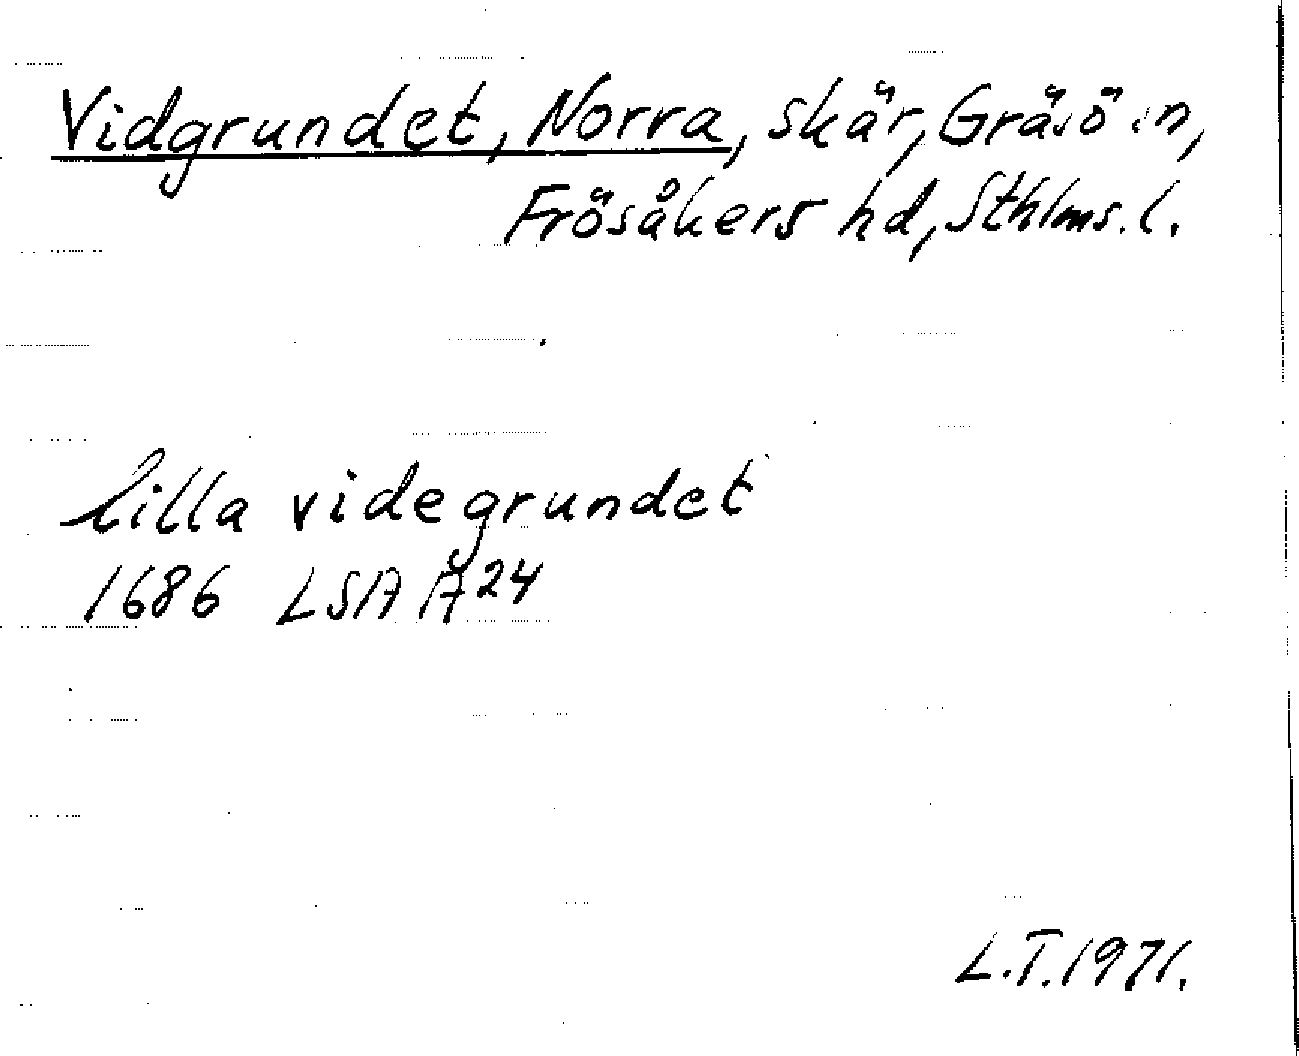 Vidgrundet, Norra, skär, Gräsö sn,
Frösåkers hd, Sthlms. l.
lilla videgrundet
1686 LSA Ä24
L.T. 1971.